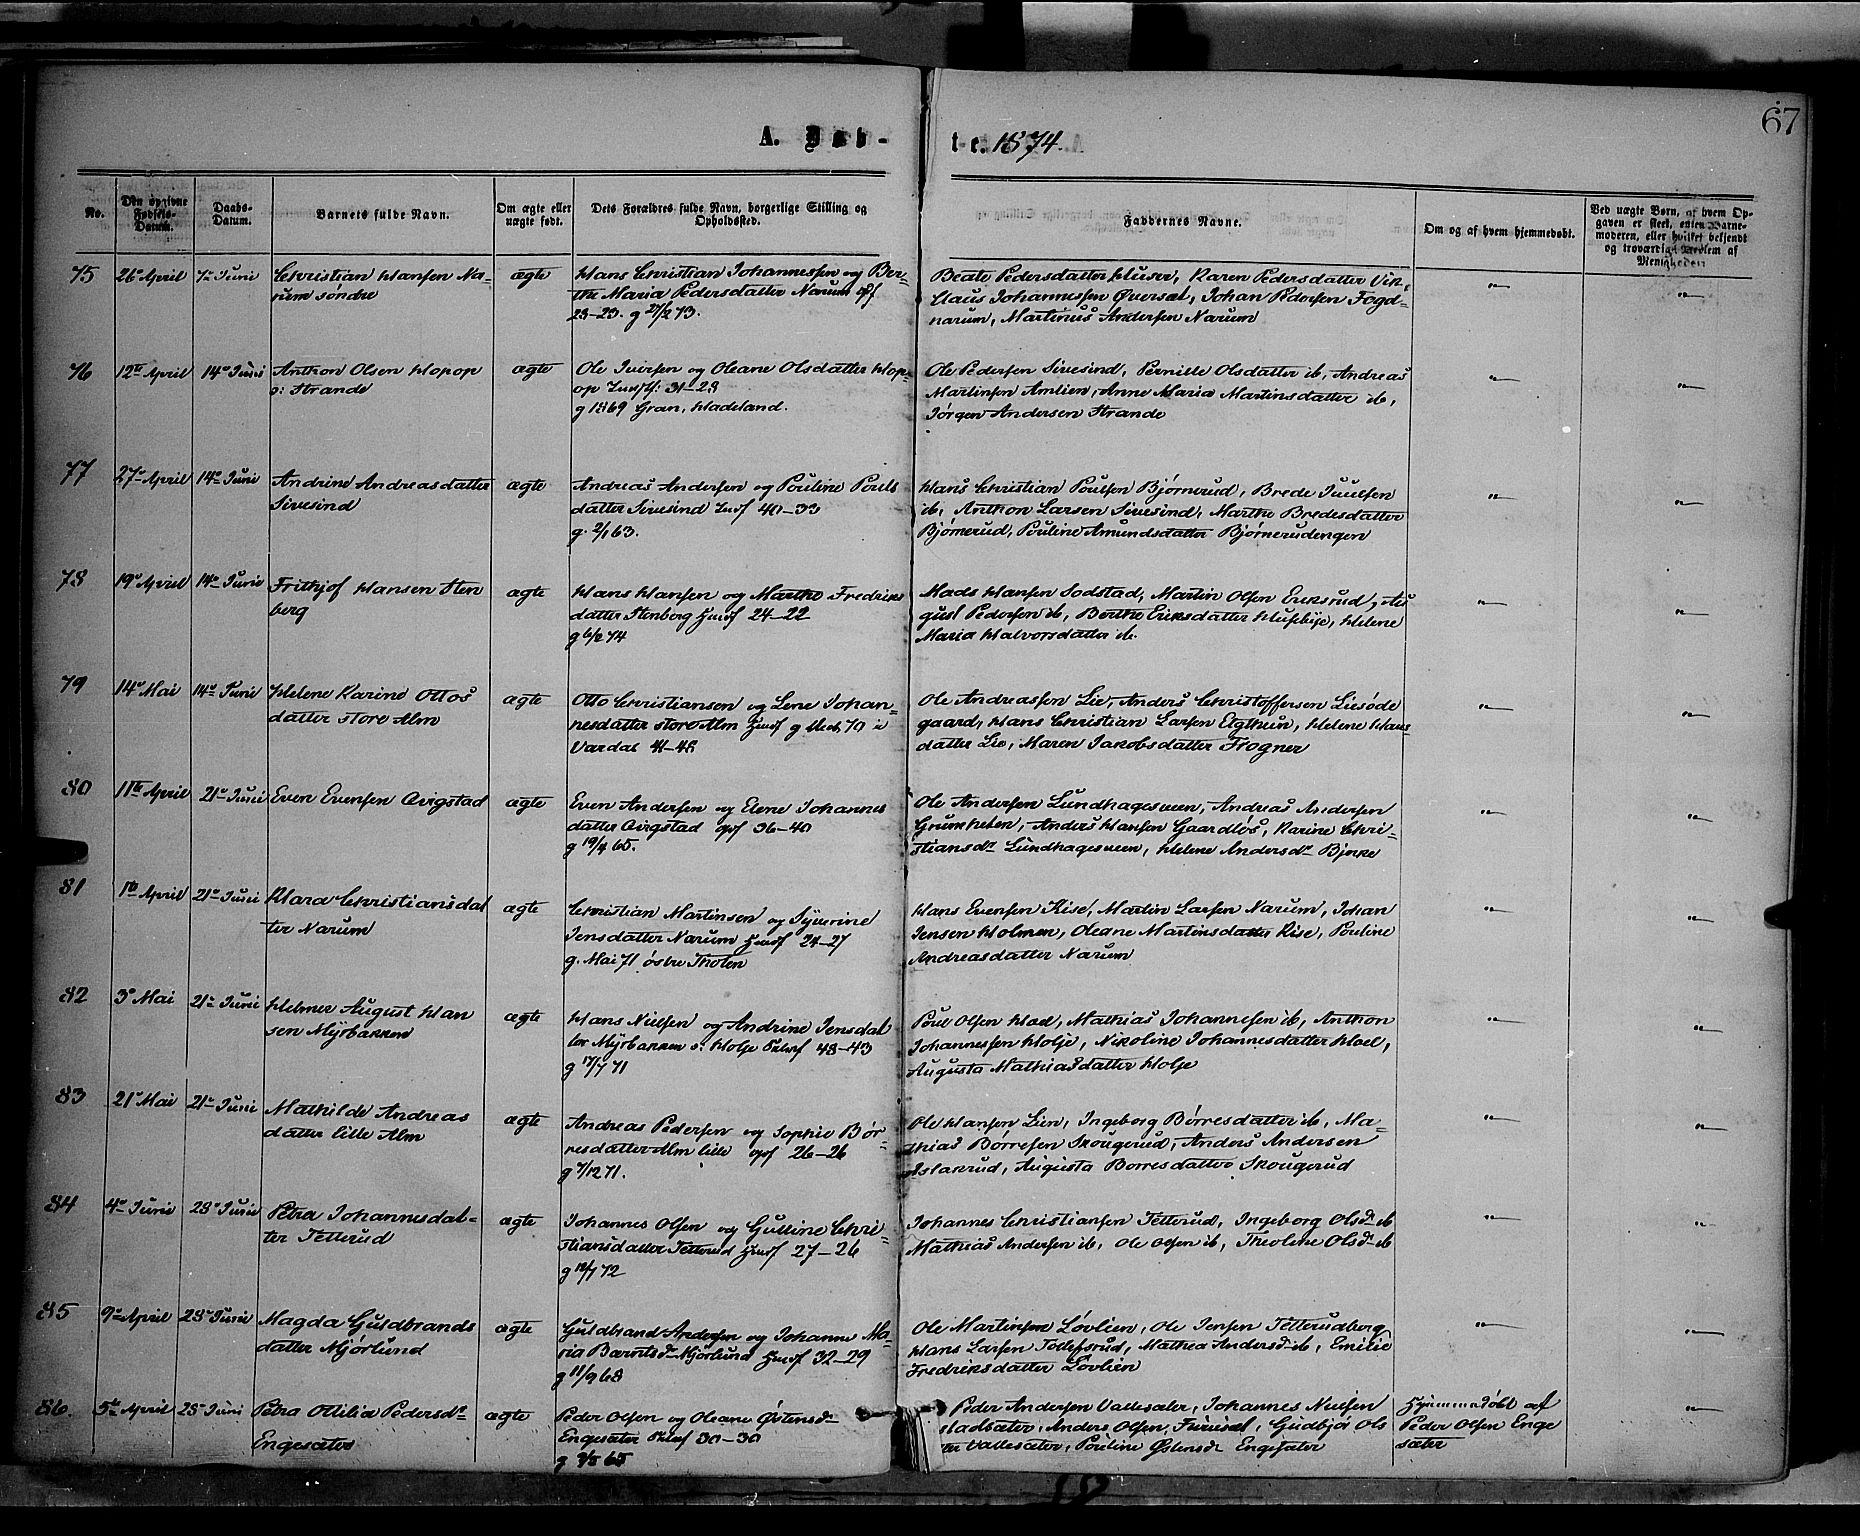 67
A. Døb-
te. 1874.
No.
Den opgivne Fødsels-Datum.
Daabs-Datum.
Barnets fulde Navn.
Om ægte eller uægte født.
Dets Forældres fulde Navn, borgerlige Stilling og Opholdssted.
Faddernes Navne.
Om og af hvem hjemmedøbt.
Ved uægte Børn, af hvem Opgaven er skeet, enten Barnemoderen, eller hvilket bekjendt og troværdigt Medlem af Menigheden
75
26 April
7de Juni
Christian Hansen Na-
rum søndre
ægte
Hans Christian Johannessen og Ber-
the Maria Pedersdatter Narum
23-23. g 73.
Beate Pedersdatter Huser, Karen Pedersdatter Vik,
Claus Johannessen Øversæt, Johan Pedersen Fogd-
narum, Martinus Andersen Narum
76
12te April
14de Juni
Anthon Olsen Hopop
o: Strande
ægte
Ole Iversen og Oleane Olsdatter Hop-
op 31-28
g 1869 Gran, Hadeland.
Ole Pedersen Sivesind, Pernille Olsdatter ib, Andreas
Martinsen Amlien, Anne Maria Martinsdatter ib,
Jørgen Andersen Strande
77
27de April
14de Juni
Andrine Andreasdatter
Sivesind
ægte
Andreas Andersen og Pouline Pouls
datter Sivesind 40-33
g. 2/1 63.
Hans Christian Poulsen Bjørnerud, Brede Juulsen
ib, Anthon Larsen Sivesind, Marthe Bredesdatter
Bjørnerud, Pouline Amundsdatter Bjørnerudengen
78
19de April
14de Juni
Frithjof Hansen Sten
berg
ægte
Hans Hansen og Marthe Fredriks
datter Stenberg Husf 24-22
g 6/2 74
Mads Hansen Sodstad, Martin Olsen Eriksrud, Au
gust Pedersen ib, Berthe Eriksdatter Husebye, Helene
Maria Halvorsdatter ib.
79
14de Mai
14de Juni
Helene Karine Ottos
datter store Alm
ægte
Otto Christiansen og Lene Johan-
nesdatter store Alm Husf g 70 i
Vardal
Ole Andreassen Lie, Anders Christoffersen Liesøde
gaard, Hans Christian Larsen Elgthun, Helene Hans
datter Lie, Maren Jakobsdatter Frogner
80
11te April
21de Juni
Even Evensen Qvigstad
ægte
Even Andersen og Elene Johannes
datter Qvigstad 36-40
g 65.
Ole Andersen Lundhagesveen, Andreas Andersen
Grumheten, Anders Hansen Gaardløs, Karine Chri-
stiansdr Lundhagesveen, Helene Andersdr Bjerke
81
1te April
21de Juni
Klara Christiansdat
ter Narum
ægte
Christian Martinsen og Syverine
Jensdatter Narum Husf 24-27
g. Mai 71 østre Thoten
Hans Evensen Kise, Martin Larsen Narum, Johan
Jensen Holmen, Oleane Martinsdatter Kise, Pouline
Andreasdatter Narum
82
3de Mai
21de Juni
Helmer August Han
sen Myrbakken
ægte
Hans Nielsen og Andrine Jensdat
ter Myrbakken o: Holje 48-43
g 17/7 71
Poul Olsen Hoel, Mathias Johannesen ib, Anthon
Johannessen Holje, Nikoline Johannesdatter Hoel,
Augusta Mathiasdatter Holje
83
21de Mai
21de Juni
Mathilde Andreas
datter lille Alm
ægte
Andreas Pedersen og Sophie Bør-
resdatter Alm lille 26-26
g 7/12 71.
Ole Hansen Lien, Ingeborg Børresdatter ib, Ma-
thias Børresen Skougerud, Anders Andersen
Islakrud, Augusta Børresdatter Skougerud
84
4de Juni
28de Juni
Petra Johannesdat-
ter Tetterud
ægte
Johannes Olsen og Gulline Chri-
stiansdatter Tetterud Husf 27-26
g 72
Johannes Christiansen Tetterud, Ingeborg Olsdr ib
Mathias Andersen ib, Ole Olsen ib, Theoline Olsdr ib
85
9de April
28de Juni
Magda Guldbrands
datter Mjørlund
ægte
Guldbrand Andersen og Johanne Ma-
ria Berntsdr Mjørlund Husf 32-29
g 11/9 68
Ole Martinsen Løvlien, Ole Jensen Tetterudberg
Hans Larsen Tollefsrud, Mathea Andersd ib, Emilie
Fredriksdatter Løvlien
86.
5te April
28de Juni
Petra Otilia Pedersdr
Engesæter
ægte
Peder Olsen og Oleane Østensdr
Engesæter 30-30
g 65
Peder Andersen Vallesæter, Johannes Nielsen
stadsæter, Anders Olsen Furusæt, Gudbjør Ols
ter Vallesæter, Pouline Østensdr Engesæter
Hjemmedøbt af
Peder Olsen Enge
sæter